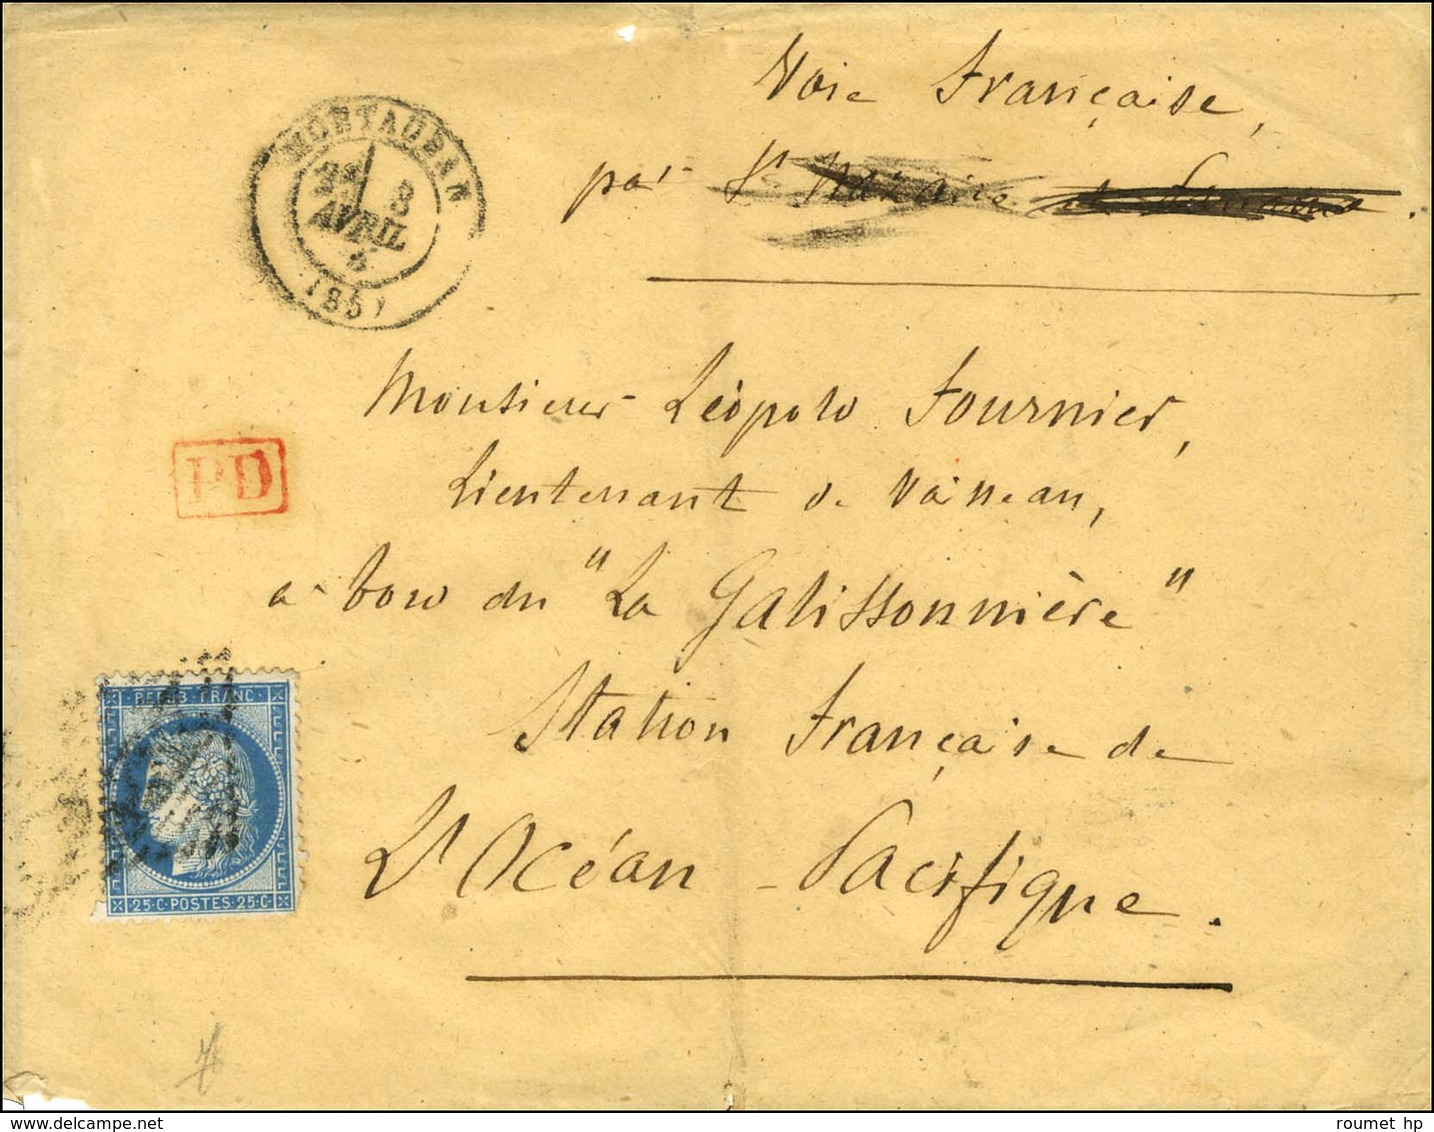 Voie Française,
par St Nazaire
MONTAUBAN
3
AVRIL
Monsieur Léopold Fournier,
Lieutenant de Vaisseau,
à bord du "La Galissonnière"
Station Française de
L'Océan-Pacifique.
PD
REPUB·FRANC·
·25·C·POSTES·25·C·
roumet hp